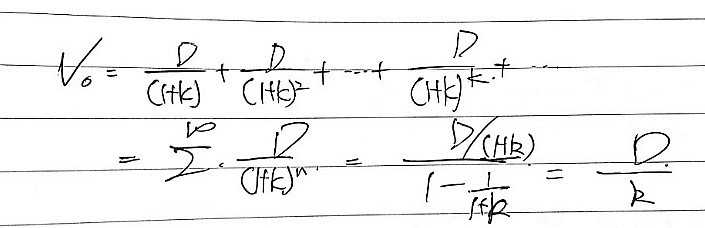 V₀ = D/(1+k) + D/(1+k)² + ⋯ + D/(1+k)^k + ⋯
= Σ^∞ D/(1+k)^n = (D/(1+k))/(1 - 1/(1+k)) = D/k